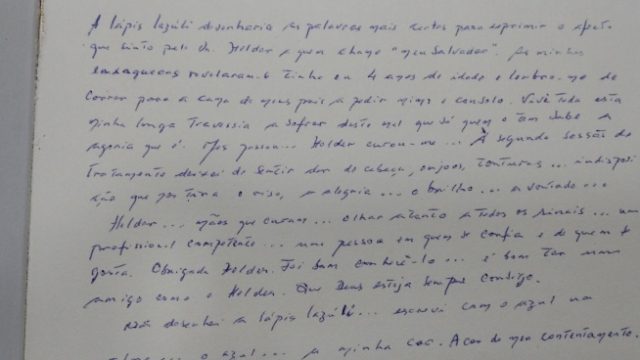 A lápis lazúli desenharia as palavras mais certas para exprimir o afeto
que sinto pelo Dr. Helder a quem chamo "meu Salvador". As minhas
enxaquecas revelaram-se tinha eu 4 anos de idade e lembro-me de
correr para a cama de meus pais a pedir mimo e consolo. Vivi toda esta
minha longa travessia a sofrer deste mal que só quem o tem sabe a
agonia que é. Mas passou... Helder curou-me... À segunda sessão de
tratamento deixei de sentir dor de cabeça, enjoos, tonturas... indisposi
ção que nos tira o riso, a alegria... o brilho... a vontade...
Helder... mãos que curam... olhar atento a todos os sinais... um
profissional competente... uma pessoa em quem se confia e de quem se
gosta. Obrigada Helder. Foi bom conhecê-lo... é bom ter um
amigo como o Helder. Que Deus esteja sempre consigo.
Não desenhei a lápis lazúli... escrevi com o azul
o azul... a minha cor. A cor do meu contentamento.